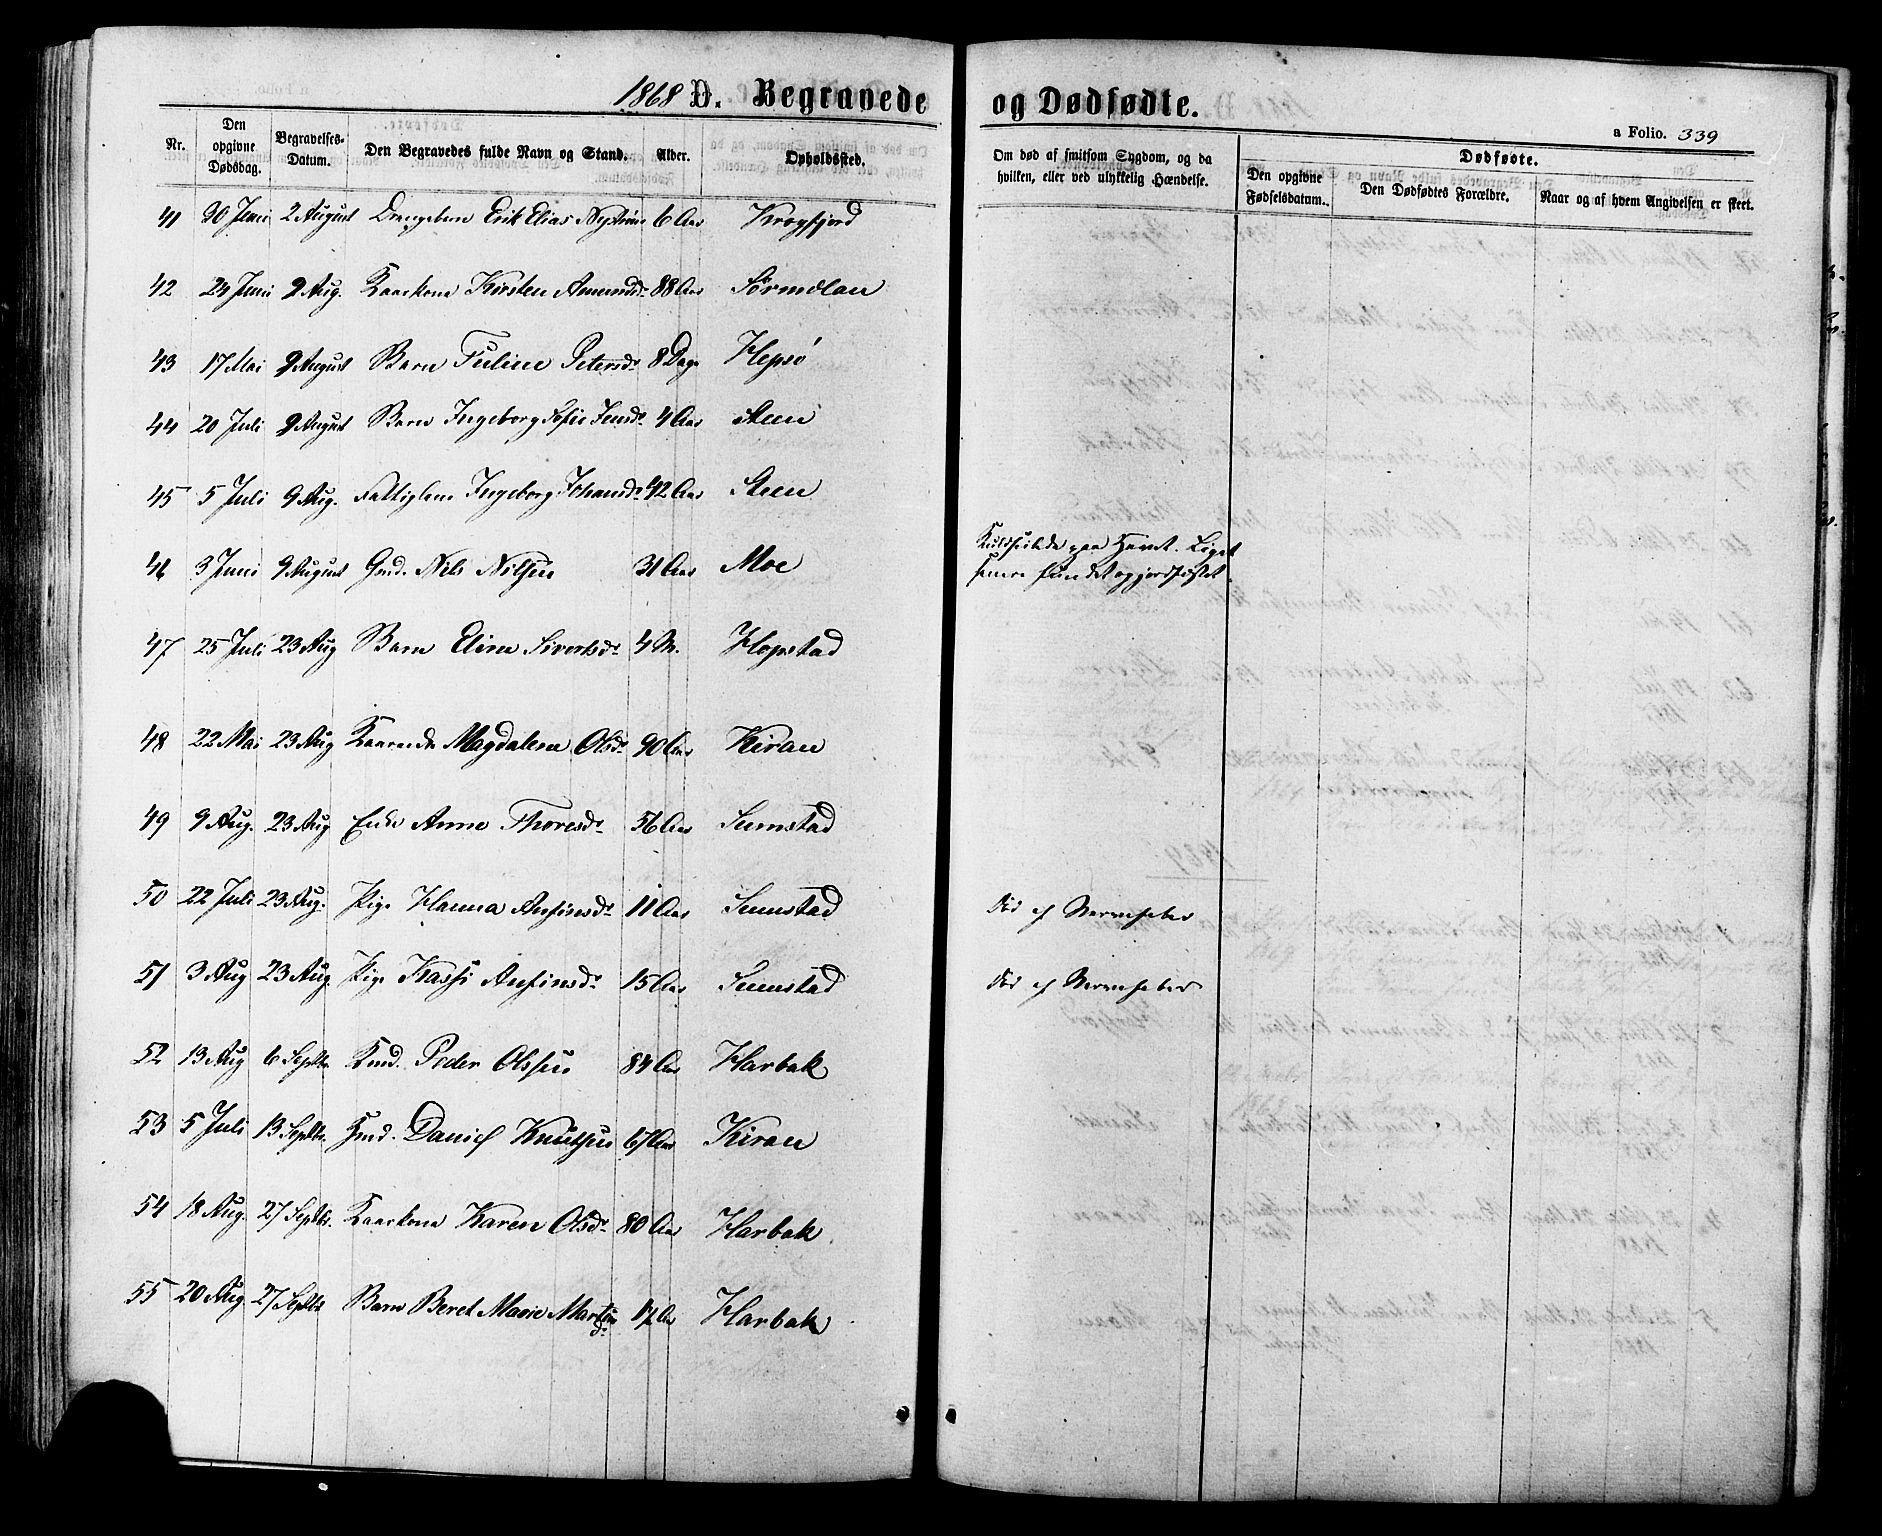 1868 D. Begravede og Dødfødte.
a Folio. 339
Nr. Den opgivne Dødsdag. Begravelses-Datum. Den Begravedes fulde Navn og Stand. Alder. Opholdssted. Om død af smitsom Sygdom, og da hvilken, eller ved ulykkelig Hændelse. Dødfødte. Den opgivne Fødselsdatum. Den Dødfødtes Forældre. Naar og af hvem Angivelsen er skeet.
41 30 Juni 2 August Drengebarn Erik Elias 6 Aar Krogfjord
42 24 Juni 9 Aug. Kaarkone Kirsten Amundsd. 88 Aar Sørmælan
43 17 Mai 9 August Barn Juline Petersd. 8 Dage Hepsø
44 20 Juli 9 August Barn Ingeborg Sofie Jensd. 4 Aar Steen
45 5 Juli 9 Aug. Fattiglem Ingeborg Johansd. 42 Aar Steen
46 3 Juni 9 August Gmd. Nils Nilsen 31 Aar Moe Kuldseilede paa Havet. Liget
senere fundet og jordfæstet.
47 25 Juli 23 Aug Barn Elina Sivertsd. 4 M. Hopstad
48 22 Mai 23 Aug Kaarenke Magdalena Olsd. 90 Aar Kiran
49 9 Aug. 23 Aug Enke Anne Thoresd. 56 Aar Sumstad
50 22 Juli 23 Aug. Pige Hanna Anfinsd. 11 Aar Sumstad Død af Nervefeber
51 3 Aug 23 Aug. Pige Anfinsd. 15 Aar Sumstad Død af Nervefeber
52 13 Aug 6 Septbr. Kmd. Peder Olssen 84 Aar Harbak
53 5 Juli 13 Septbr. Daniel Knutsen 67 Aar Kiran
54 18 Aug. 27 Septbr. Kaarkone Karen Olsd. 80 Aar Harbak
55 20 Aug 27 Septbr Barn Beret Marie Martin
d. Aar Harbak